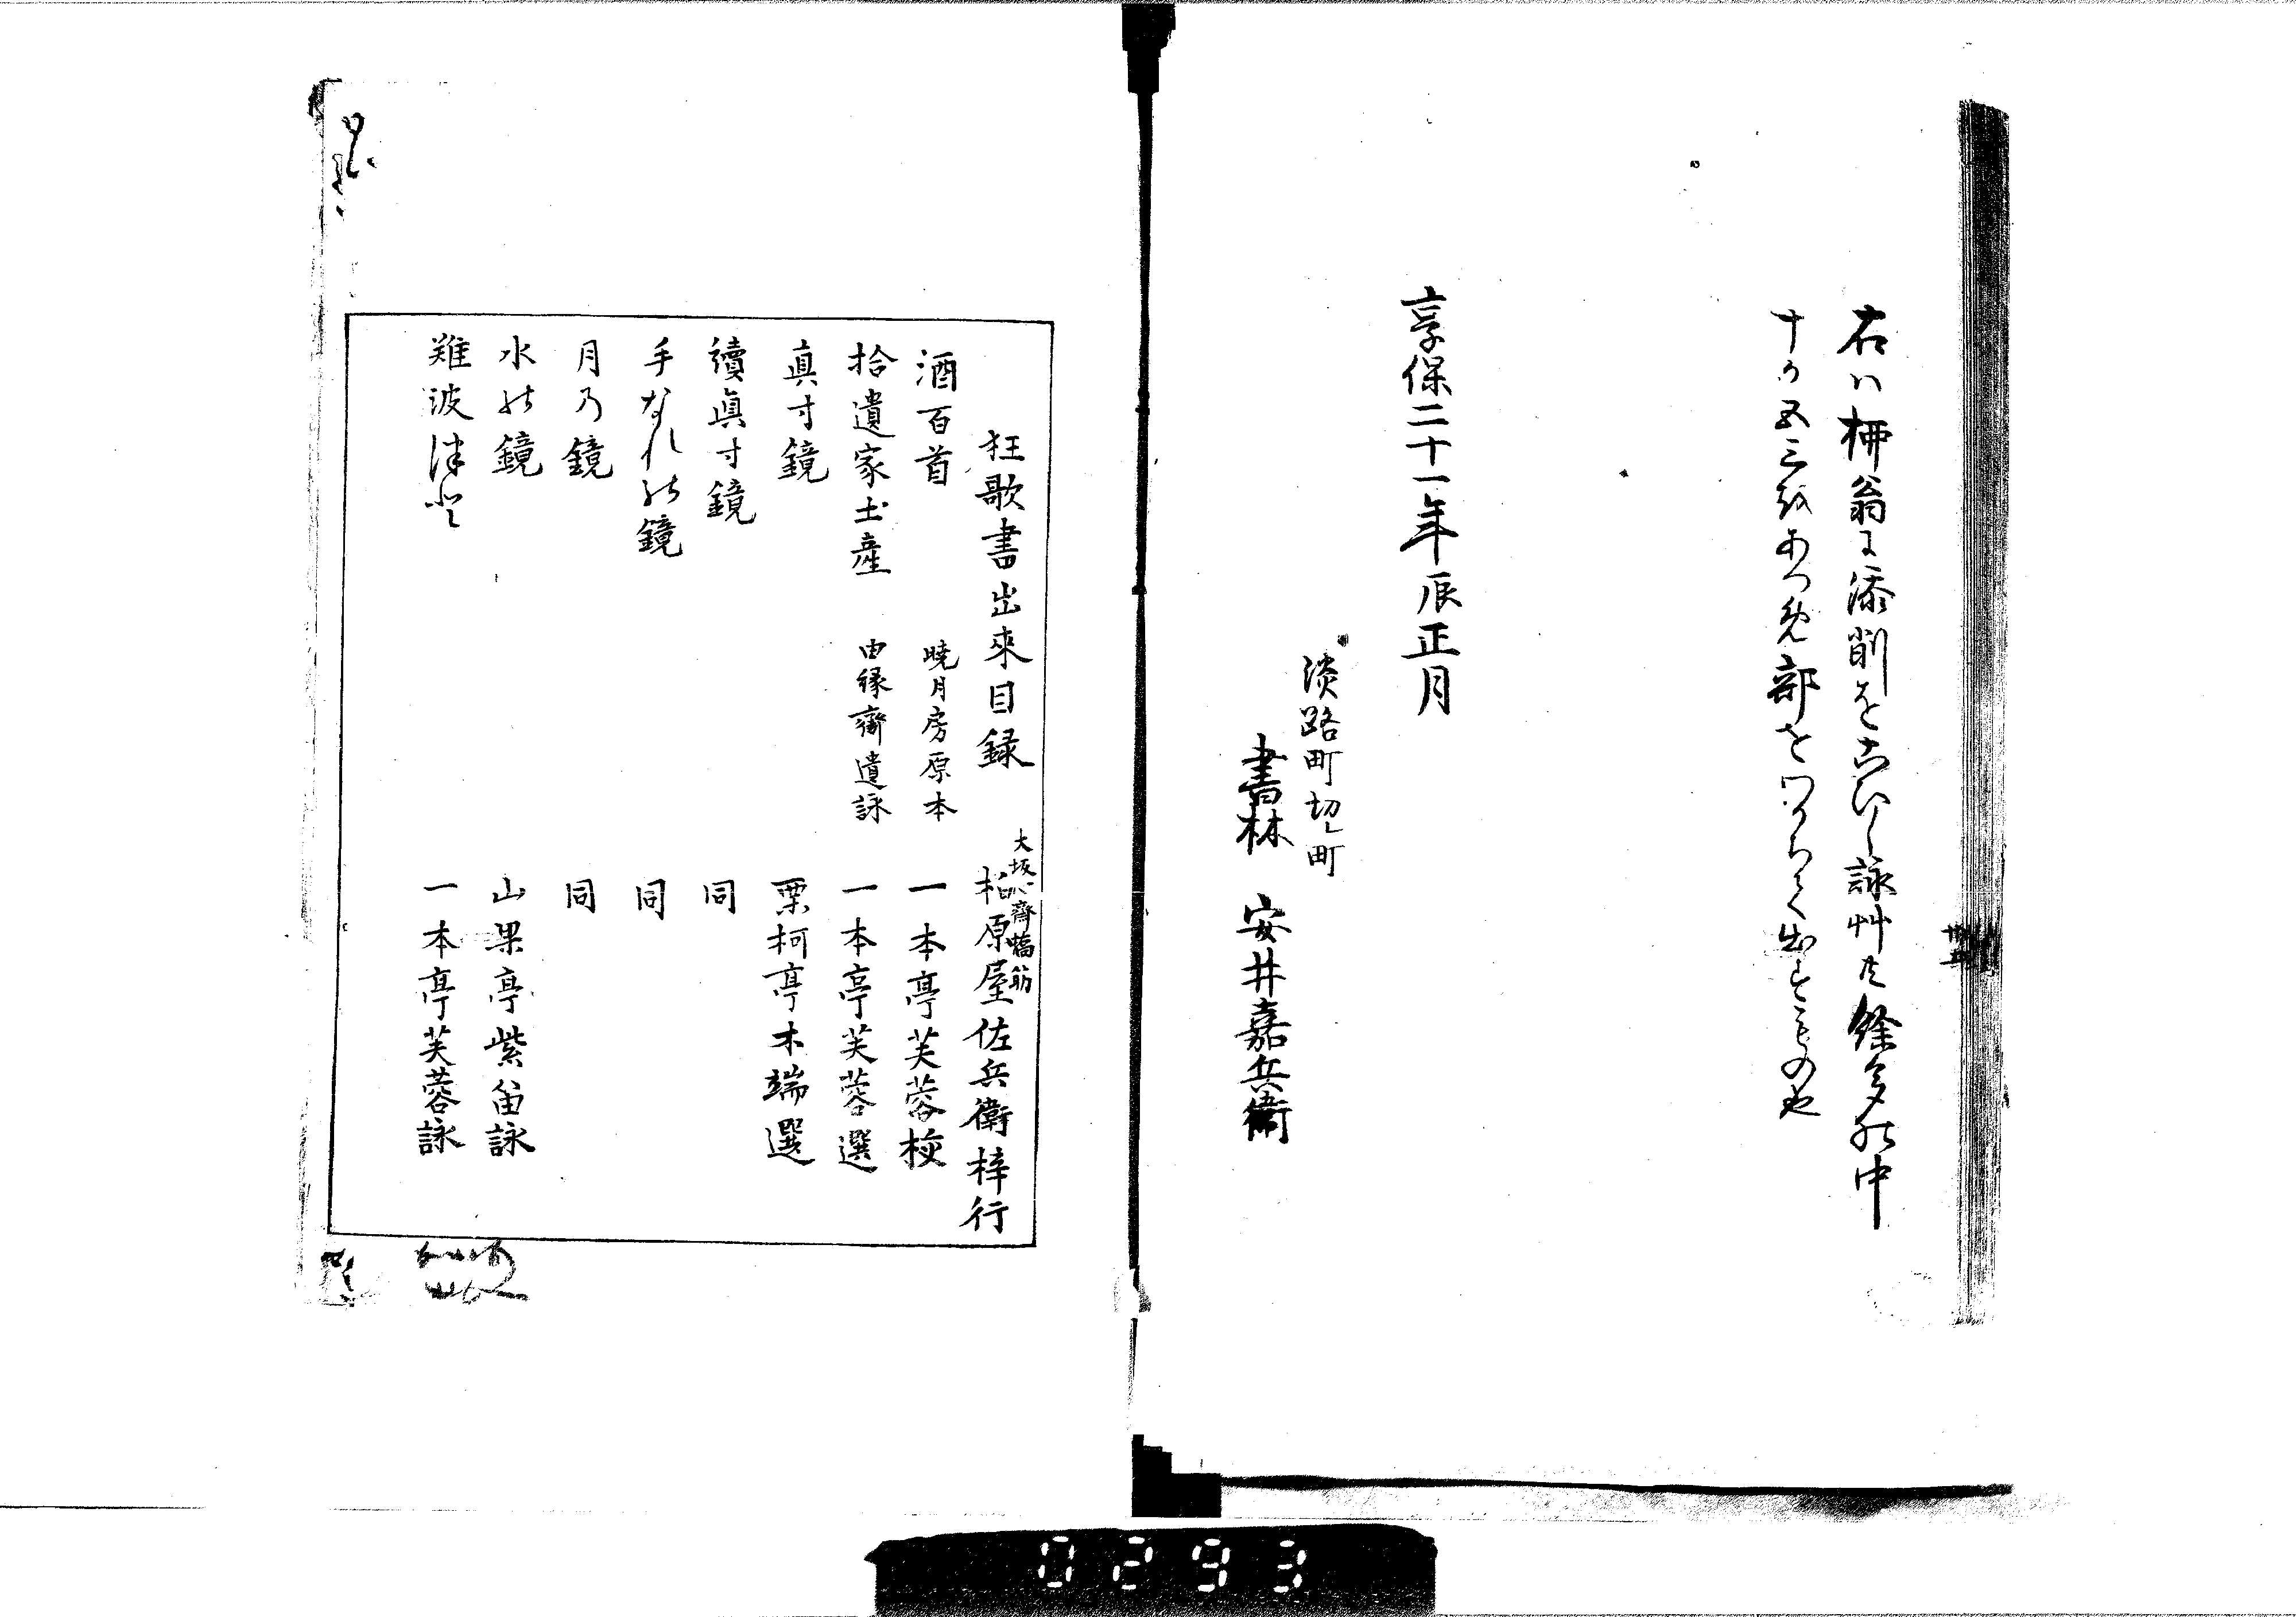 右ハ柳翁に添削をこひし詠艸其餘多の中
十か五三をあつめ部をわかちて出すもの也
享保二十一年辰正月
淡路町切レ町
書林 安井嘉兵衛
狂歌書出來目録 大坂心齋橋筋 柏原屋佐兵衛梓行
酒百首 暁月房原本 一本亭芙蓉校
拾遺家土産 由縁齋遺詠 一本亭芙蓉選
真寸鏡 栗柯亭木端選
續真寸鏡 同
手なれの鏡 同
月乃鏡 同
水の鏡 山果亭紫笛詠
難波津 一本亭芙蓉詠
0293